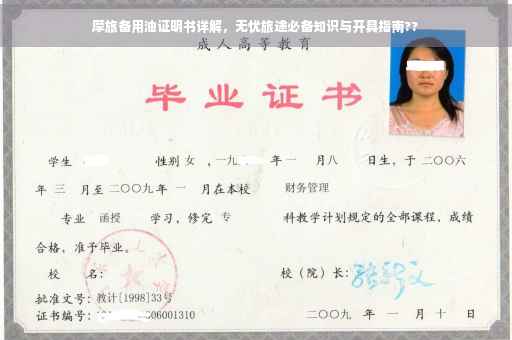 摩旅备用油证明书详解，无忧旅途必备知识与开具指南??
成人高等教育
毕业证书
学生 性别 女 ，一九 年 一 月八 日生，于 二〇〇六
年 三 月至 二〇〇九 年 一 月在本校 财务管理
专业 函授 学习，修完 专 科教学计划规定的全部课程，成绩
合格，准予毕业。
校 名： 校（院）长：
批准文号：教计[1998]33号
证书编号： 06001310 二〇〇九 年 一 月 十 日